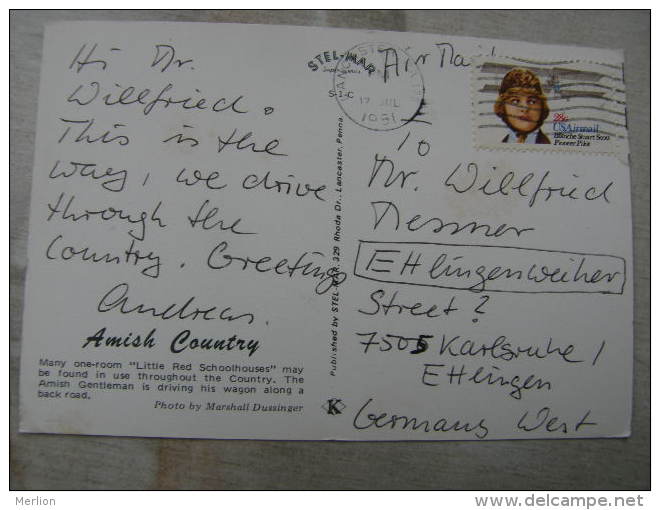 Hi Mr.
Willfried.
This is the
way, we drive
through the
Country. Greeting
Andreas.
Amish Country
Many one-room "Little Red Schoolhouses" may
be found in use throughout the Country. The
Amish Gentleman is driving his wagon along a
back road.
Photo by Marshall Dussinger
Published by STEL-MAR, 329 Rhoda Dr., Lancaster, Penna.
STEL-MAR
S-1-C
K
17 JUL
1981
Air Mail
28c
USAirmail
Blanche Stuart Scott
Pioneer Pilot
To
Mr. Willfried
Messmer
Ettlingenweiher
Street?
7505 Karlsruhe 1
Ettlingen
Germany West
Merlion
http://www.delcampe.net